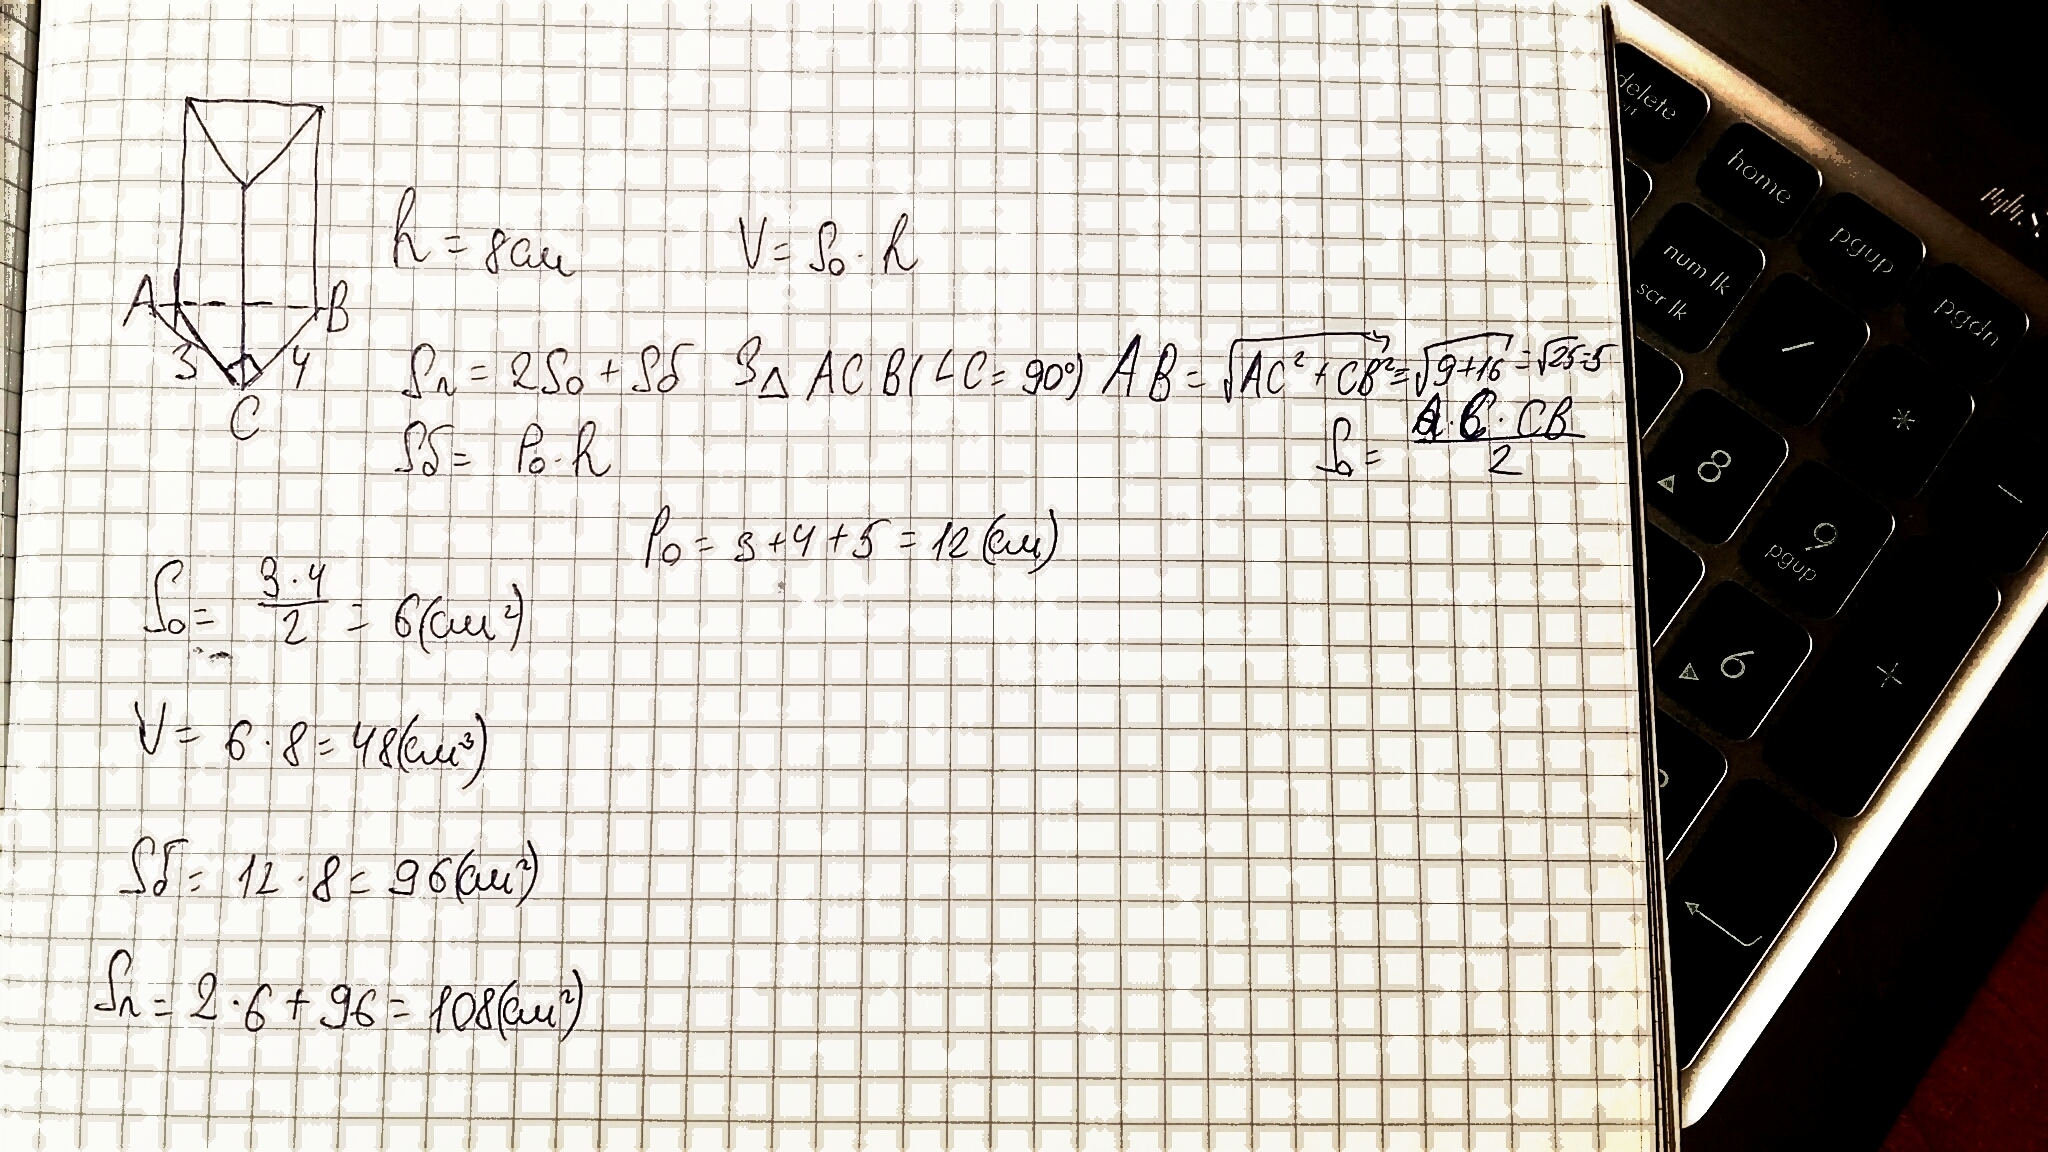 h = 8см
V = So · h
A
B
3
4
C
Sп = 2So + Sб
З△ ACB (∠C = 90°) AB = √AC² + CB² = √9+16 = √25=5
Sб = Po · h
So = AC · CB / 2
Po = 3+4+5 = 12 (см)
So = 3·4 / 2 = 6(см²)
V = 6·8 = 48(см³)
Sб = 12·8 = 96(см²)
Sп = 2·6 + 96 = 108(см²)
delete
home
pgup
pgdn
num lk
scr lk
/
*
-
8
9
pgup
6
+